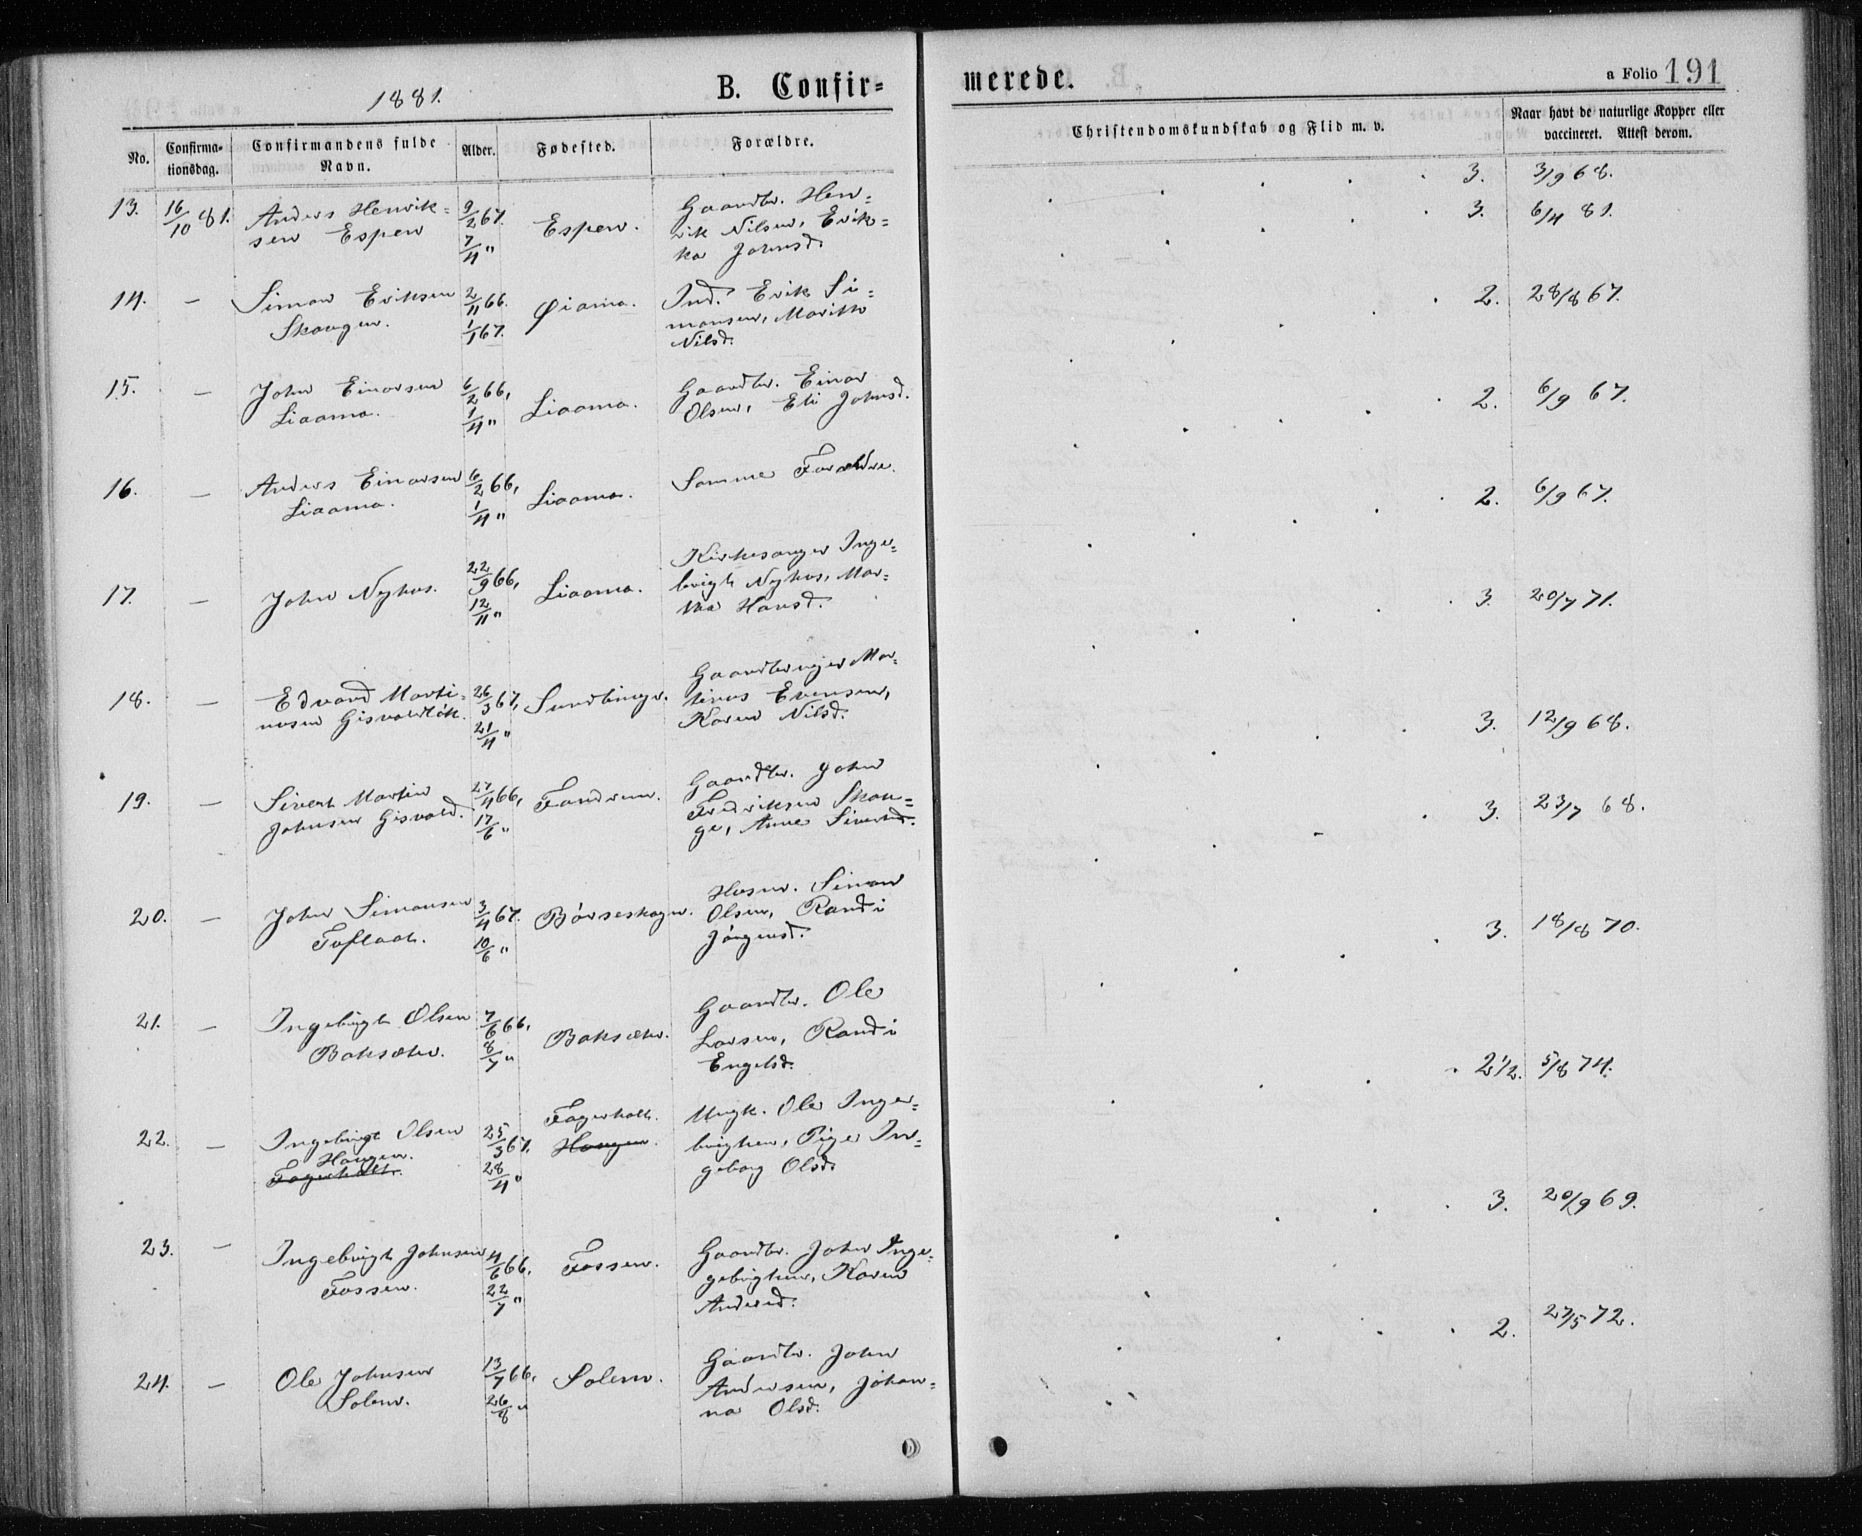 1881.
B. Confir-
merede.
a Folio 191
No.
Confirma-
tionsdag.
Confirmandens fulde
Navn.
Alder.
Fødested.
Forældre.
Christendomskundskab og Flid m. v.
Naar havt de naturlige Kopper eller
vaccineret. Attest derom.
13. 16/10 81. Anders Henrik-
sen Espen 9/2 67. 7/4 " Espen. Gaardbr. Hen-
rik Nilsen, Erik-
ka Johnsd. 3. 3/9 68.
3. 6/4 81.
14. — Simon Eriksen
Skaugen. 2/11 66. 1/1 67. Øiama. Ind. Erik Si-
monsen, Marith
Nilsd. 2. 28/8 67.
15. — John Einarsen
Liaama. 6/2 66, 1/4 " Liaama. Gaardbr. Einar
Olsen, Eli Johnsd. 2. 6/9 67.
16. — Anders Einarsen
Liaama. 6/2 66, 1/4 " Liaama. Samme Forældre. 2. 6/9 67.
17. — John Nyhus. 22/9 66, 12/11 " Liaama. Kirkesanger Inge-
brigt Nyhus, Mar-
tha Hansd. 3. 20/7 71.
18. — Edvard Marti-
nusen Gisvoldløk. 26/3 67, 21/4 " Sundbinge. Gaardbruger Mar-
tinus Evensen,
Karen Nilsd. 3. 12/9 68.
19. — Sivert Martin
Johnsen Gisvold. 27/4 66, 17/6 " Fandrem. Gaardbr. John
Fredriksen Skau-
ge, Anne Sivertsd. 3. 23/7 68.
20. — John Simonsen
Toflaat. 3/4 67. 10/6 " Børseskogn. Husm. Simon
Olsen, Randi
Jørgensd. 3. 18/8 70.
21. — Ingebrigt Olsen
Baksæter. 7/6 66, 8/7 " Baksæter. Gaardbr. Ole
Larsen, Randi
Engelsd. 2 1/2. 5/8 74.
22. — Ingebrigt Olsen
Haugen.
Fagerholt. 25/3 67. 28/4 " Fagerholt.
Haugen. Ungk. Ole Inge-
brigtsen, Pige In-
geborg Olsd. 3. 20/9 69.
23. — Ingebrigt Johnsen
Fossen. 4/6 66. 22/7 " Fossen. Gaardbr. John Inge-
gebrigtsen, Karen
Andersd. 2. 27/5 72.
24. — Ole Johnsen
Solem. 13/7 66, 26/8 " Solem. Gaardbr. John
Andersen, Johan-
na Olsd.